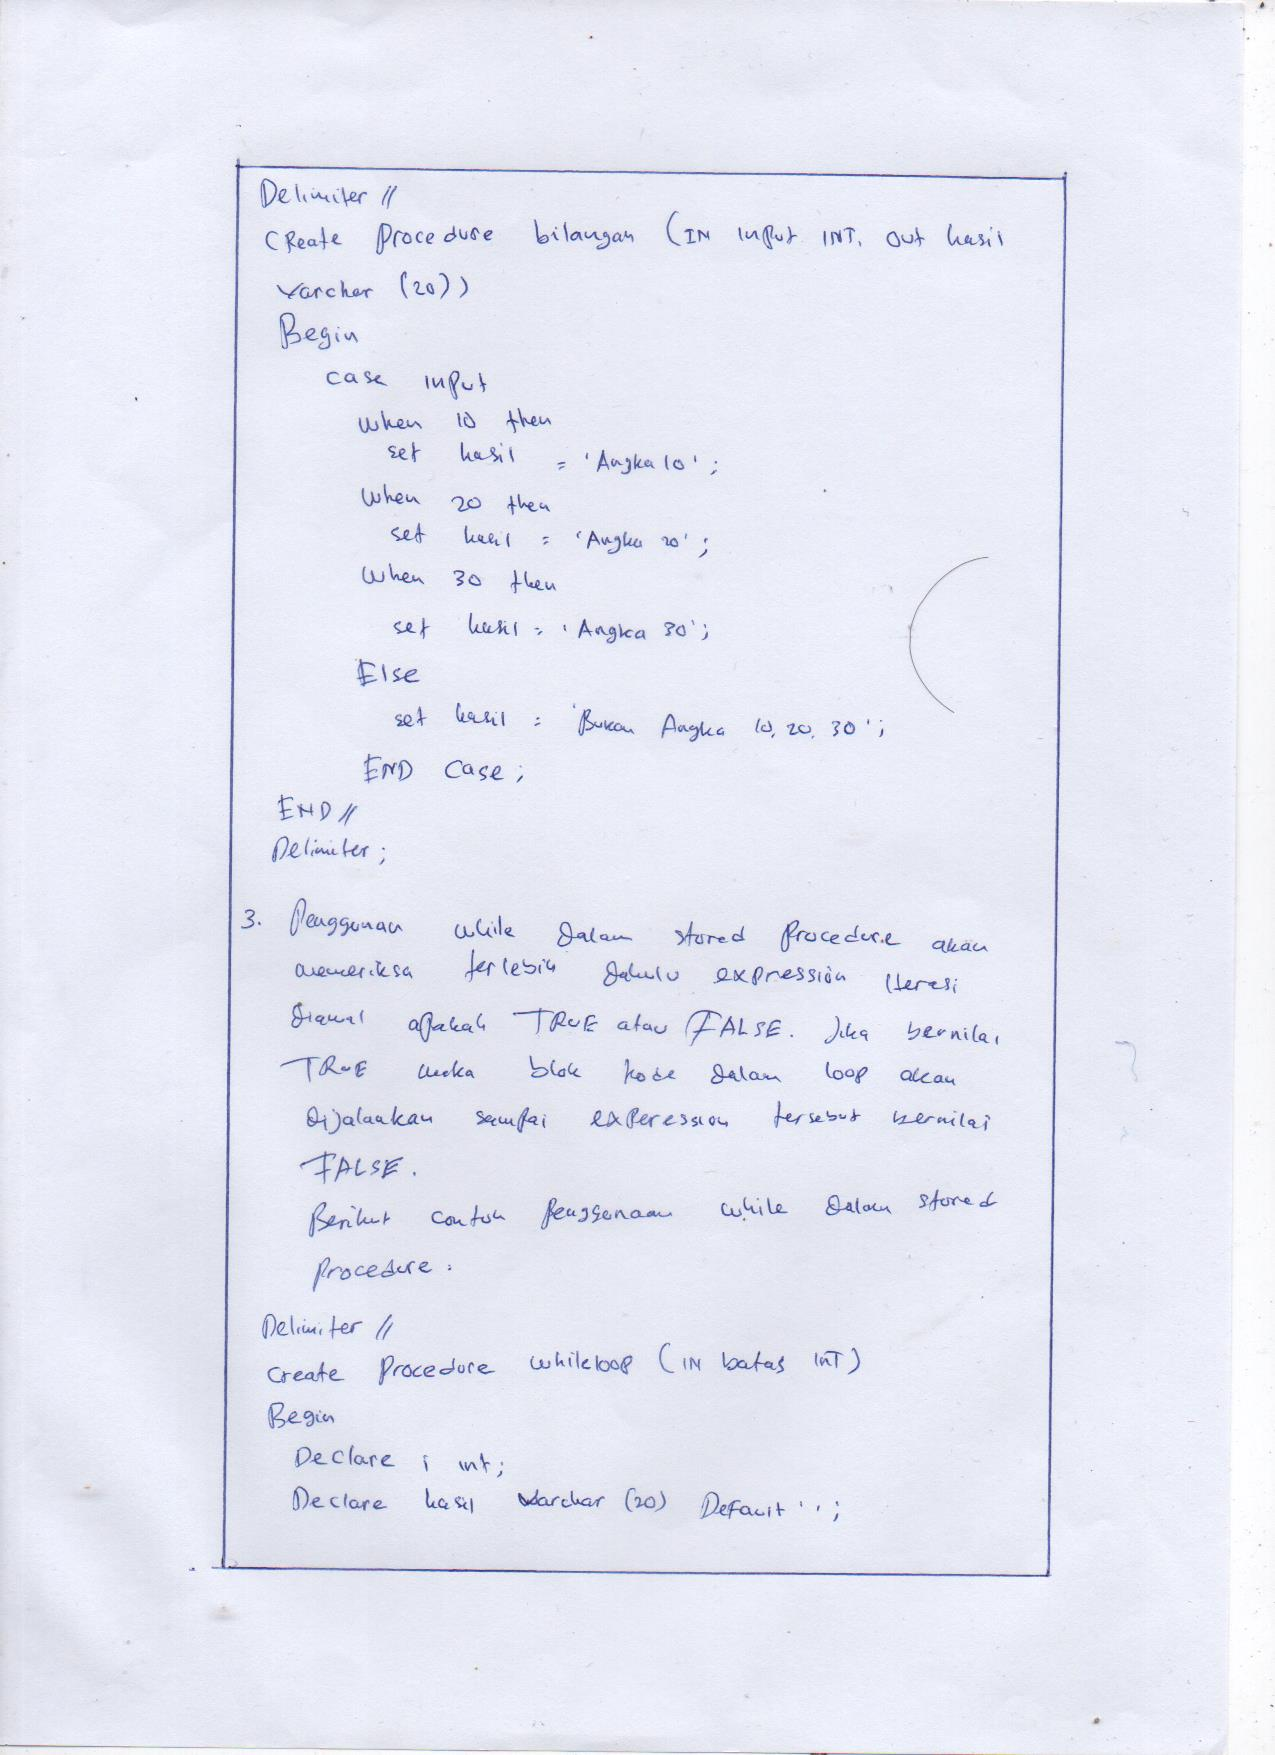 Delimiter //
CReate Procedure bilangan (IN input INT, out hasil
varchar (20))
Begin
case input
when 10 then
set hasil = 'Angka 10' ;
when 20 then
set hasil = 'Angka 20' ;
when 30 then
set hasil = 'Angka 30' ;
Else
set hasil = 'Bukan Angka 10, 20, 30' ;
END Case ;
END //
Delimiter ;
3. Penggunan while dalam stored Procedure akan
memeriksa terlebih dahulu expression Iterasi
diawal apakah TRUE atau FALSE. Jika bernilai
TRUE maka blok kode dalam loop akan
dijalankan sampai experession tersebut bernilai
FALSE.
Berikut contoh Penggunaan while dalam stored
Procedure :
Delimiter //
create Procedure whileloop (IN batas INT)
Begin
Declare i int;
Declare hasil varchar (20) Default '' ;